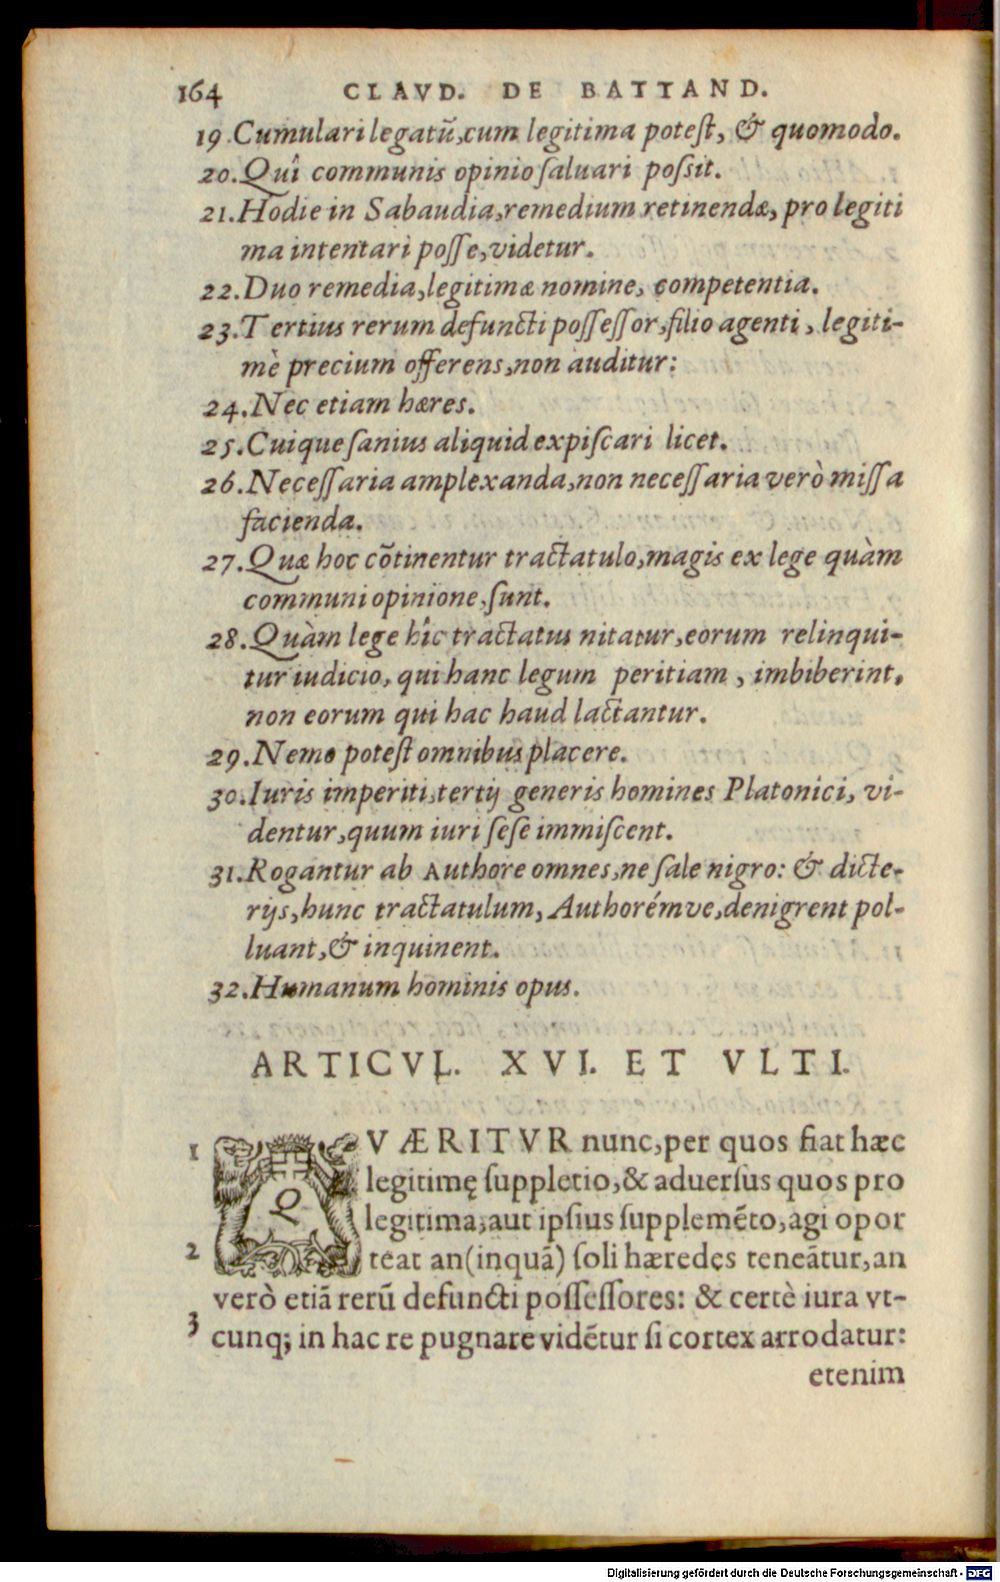 164 CLAVD. DE BATTAND.
19.Cumulari legatū,cum legitima poteſt, & quomodo.
20.Quî communis opinio ſaluari poſsit.
21.Hodie in Sabaudia,remedium retinendæ, pro legiti
ma intentari poſſe,videtur.
22.Duo remedia,legitimæ nomine, competentia.
23.Tertius rerum defuncti poſſeſſor,filio agenti, legiti-
mè precium offerens,non auditur:
24.Nec etiam hæres.
25.Cuique ſanius aliquid expiſcari licet.
26.Neceſſaria amplexanda,non neceſſaria verò miſſa
facienda.
27.Quæ hoc cōtinentur tractatulo,magis ex lege quàm
communi opinione,ſunt.
28.Quàm lege hîc tractatus nitatur,eorum relinqui-
tur iudicio, qui hanc legum peritiam, imbiberint,
non eorum qui hac haud lactantur.
29.Nemo poteſt omnibus placere.
30.Iuris imperiti,tertij generis homines Platonici, vi-
dentur,quum iuri ſeſe immiſcent.
31.Rogantur ab Authore omnes,ne ſale nigro: & dicte-
rijs,hunc tractatulum, Authorémve,denigrent pol-
luant,& inquinent.
32.Humanum hominis opus.
ARTICVL. XVI. ET VLTI.
1 QVÆRITVR nunc,per quos fiat hæc
legitimę ſuppletio,& aduerſus quos pro
legitima,aut ipſius ſupplemēto,agi opor
2 teat an(inquā) ſoli hæredes teneātur,an
verò etiā rerū defuncti poſſeſſores: & certè iura vt-
3 cunq; in hac re pugnare vidētur ſi cortex arrodatur:
etenim
Digitalisierung gefördert durch die Deutsche Forschungsgemeinschaft - DFG